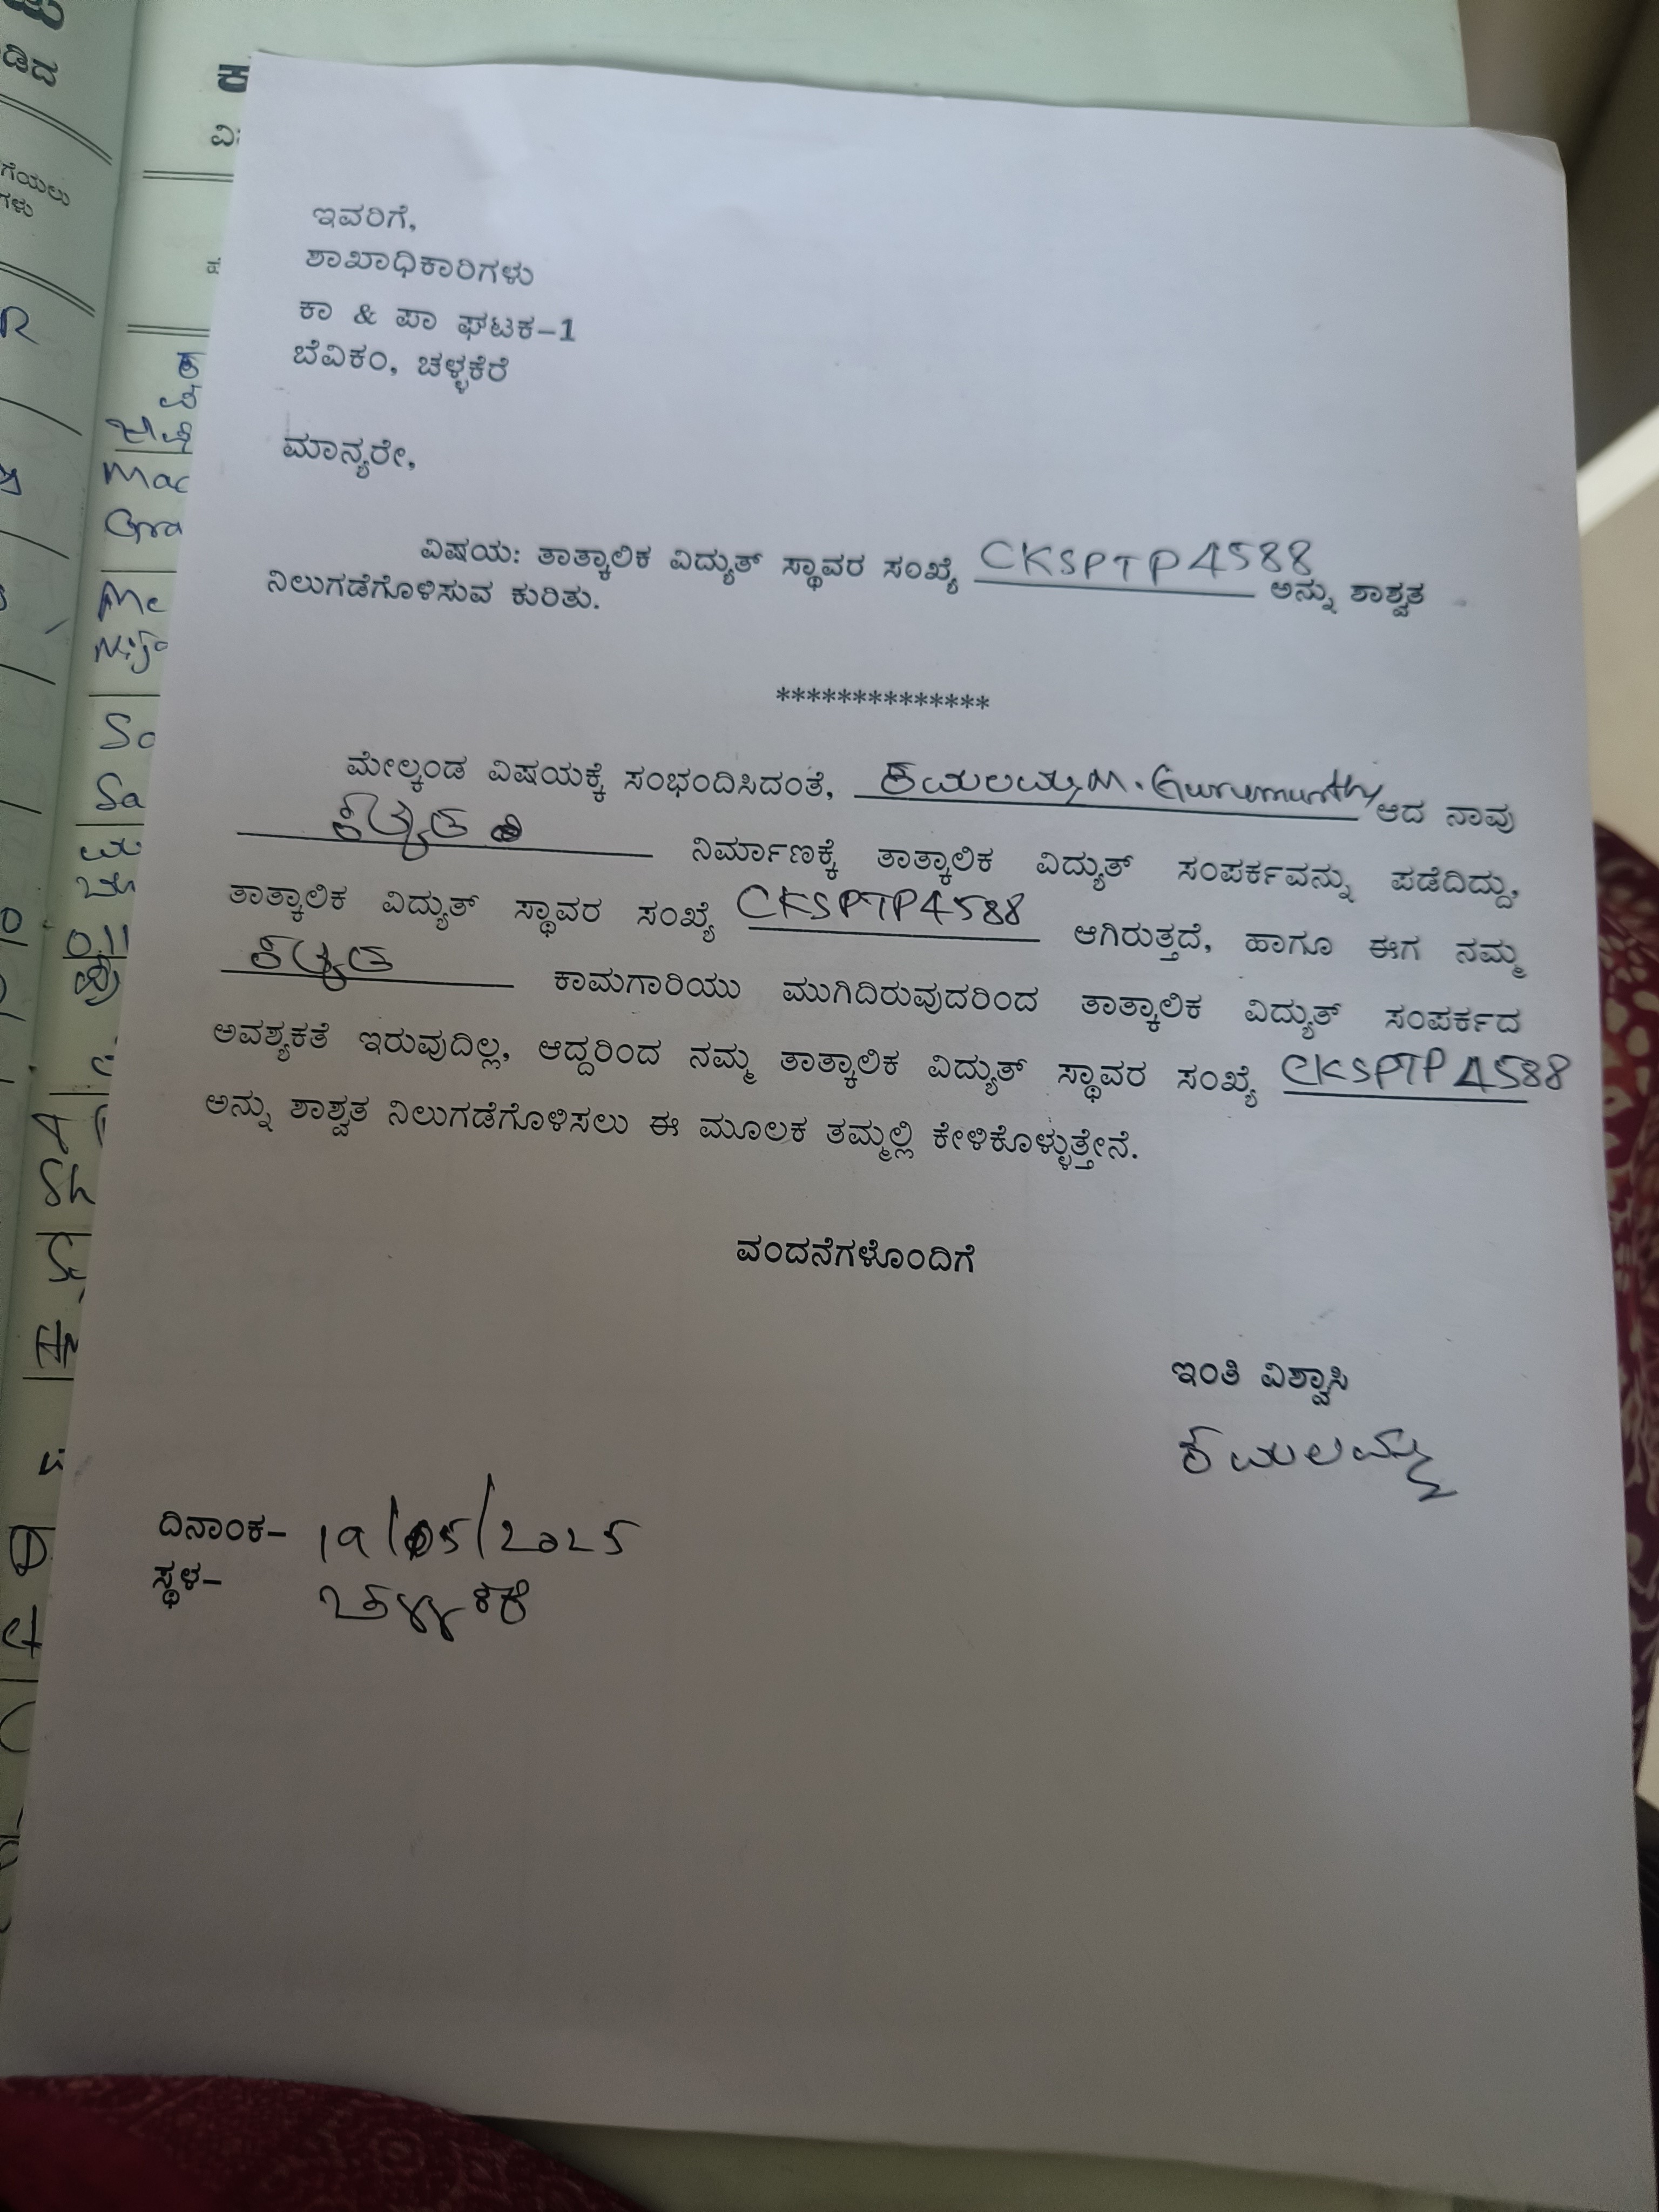 ಇವರಿಗೆ,
ಶಾಖಾಧಿಕಾರಿಗಳು
ಕಾ & ಪಾ ಘಟಕ–1
ಬೆವಿಕಂ, ಚಳ್ಳಕೆರೆ
ಮಾನ್ಯರೇ,
ವಿಷಯ: ತಾತ್ಕಾಲಿಕ ವಿದ್ಯುತ್ ಸ್ಥಾವರ ಸಂಖ್ಯೆ CKSPTP4588 ಅನ್ನು ಶಾಶ್ವತ
ನಿಲುಗಡೆಗೊಳಿಸುವ ಕುರಿತು.
**************
ಮೇಲ್ಕಂಡ ವಿಷಯಕ್ಕೆ ಸಂಭಂದಿಸಿದಂತೆ, ಕಮಲಮ್ಮ M. Gurumurthy ಆದ ನಾವು
ನಿರ್ಮಾಣಕ್ಕೆ ತಾತ್ಕಾಲಿಕ ವಿದ್ಯುತ್ ಸಂಪರ್ಕವನ್ನು ಪಡೆದಿದ್ದು,
ತಾತ್ಕಾಲಿಕ ವಿದ್ಯುತ್ ಸ್ಥಾವರ ಸಂಖ್ಯೆ CKSPTP4588 ಆಗಿರುತ್ತದೆ, ಹಾಗೂ ಈಗ ನಮ್ಮ
ಕಾಮಗಾರಿಯು ಮುಗಿದಿರುವುದರಿಂದ ತಾತ್ಕಾಲಿಕ ವಿದ್ಯುತ್ ಸಂಪರ್ಕದ
ಅವಶ್ಯಕತೆ ಇರುವುದಿಲ್ಲ, ಆದ್ದರಿಂದ ನಮ್ಮ ತಾತ್ಕಾಲಿಕ ವಿದ್ಯುತ್ ಸ್ಥಾವರ ಸಂಖ್ಯೆ CKSPTP4588
ಅನ್ನು ಶಾಶ್ವತ ನಿಲುಗಡೆಗೊಳಿಸಲು ಈ ಮೂಲಕ ತಮ್ಮಲ್ಲಿ ಕೇಳಿಕೊಳ್ಳುತ್ತೇನೆ.
ವಂದನೆಗಳೊಂದಿಗೆ
ಇಂತಿ ವಿಶ್ವಾಸಿ
ಕಮಲಮ್ಮ
ದಿನಾಂಕ– 19/05/2025
ಸ್ಥಳ– ಚಳ್ಳಕೆರೆ